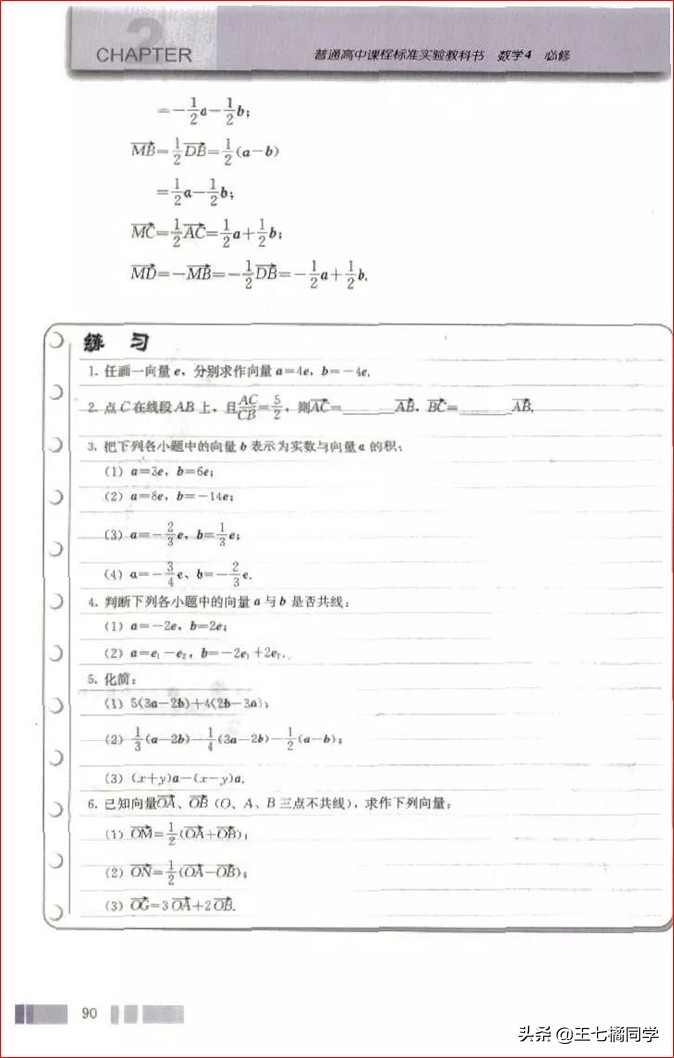 2
CHAPTER
普通高中课程标准实验教科书 数学4 必修
=-1/2a-1/2b;
MB→=1/2DB→=1/2(a-b)
=1/2a-1/2b;
MC→=1/2AC→=1/2a+1/2b;
MD→=-MB→=-1/2DB→=-1/2a+1/2b.
练 习
1. 任画一向量e，分别求作向量a=4e，b=-4e.
2. 点C在线段AB上，且AC/CB=5/2，则AC→=______AB→，BC→=______AB→.
3. 把下列各小题中的向量b表示为实数与向量a的积：
(1) a=3e，b=6e;
(2) a=8e，b=-14e;
(3) a=-2/3e，b=1/3e;
(4) a=-3/4e，b=-2/3e.
4. 判断下列各小题中的向量a与b是否共线：
(1) a=-2e，b=2e;
(2) a=e₁-e₂，b=-2e₁+2e₂.
5. 化简：
(1) 5(3a-2b)+4(2b-3a);
(2) 1/3(a-2b)-1/4(3a-2b)-1/2(a-b);
(3) (x+y)a-(x-y)a.
6. 已知向量OA→、OB→（O、A、B三点不共线），求作下列向量：
(1) OM→=1/2(OA→+OB→);
(2) ON→=1/2(OA→-OB→);
(3) OG→=3OA→+2OB→.
90
头条 @王七橘同学